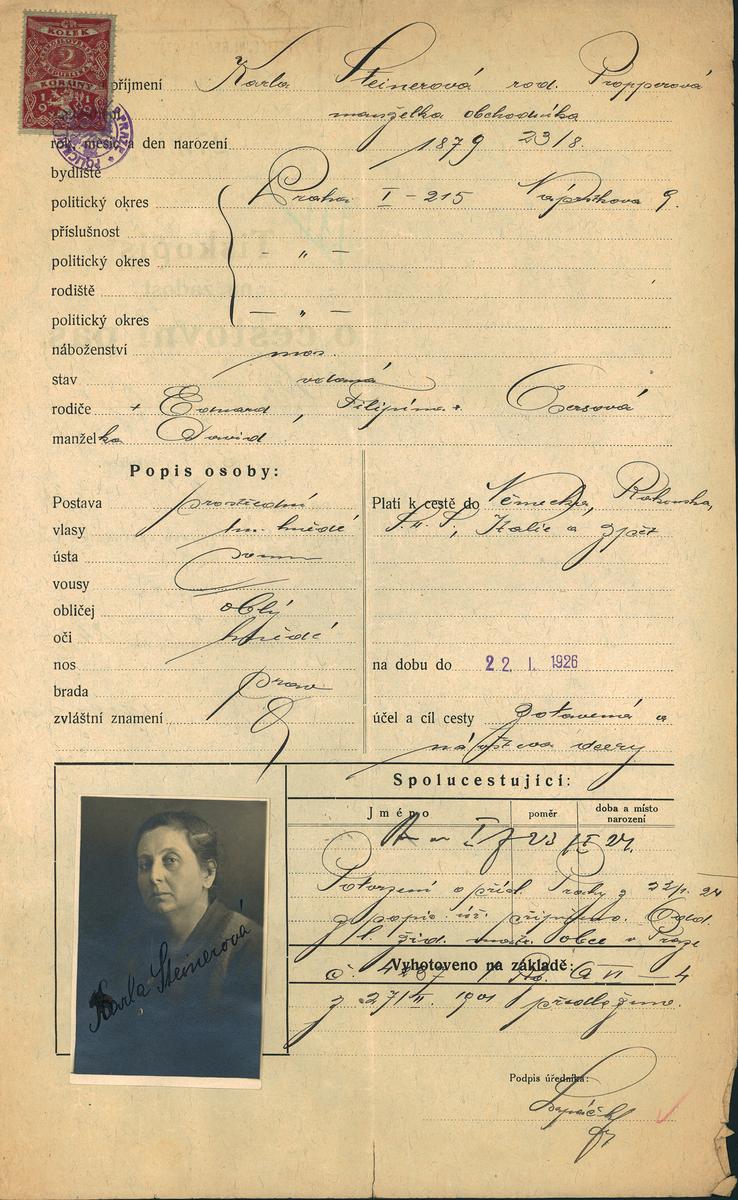 KOLEK
2
KORUNY
příjmení Karla Steinerová roz. Propperová
manželka obchodníka
rok, měsíc a den narození 1879 23/8.
bydliště
politický okres Praha I – 215 Náprstkova 9.
příslušnost
politický okres – „ –
rodiště
politický okres – „ –
náboženství mos.
stav vdaná
rodiče + Eduard, Filipina
manželka David
Popis osoby:
Postava prostřední
vlasy tm. hnědé
ústa
vousy
obličej oblý
oči hnědé
nos
brada
zvláštní znamení
Platí k cestě do Německa, Rakouska,
S.H.S, Italie a zpět
na dobu do 22. I. 1926
účel a cíl cesty zotavená a
návštěva dcery
Spolucestující:
Jméno poměr doba a místo narození
Potvrzení o přísl. Prahy z
žid. obce v Praze
Vyhotoveno na základě:
č.
z 1901 předloženo.
Podpis úředníka:
Karla Steinerová